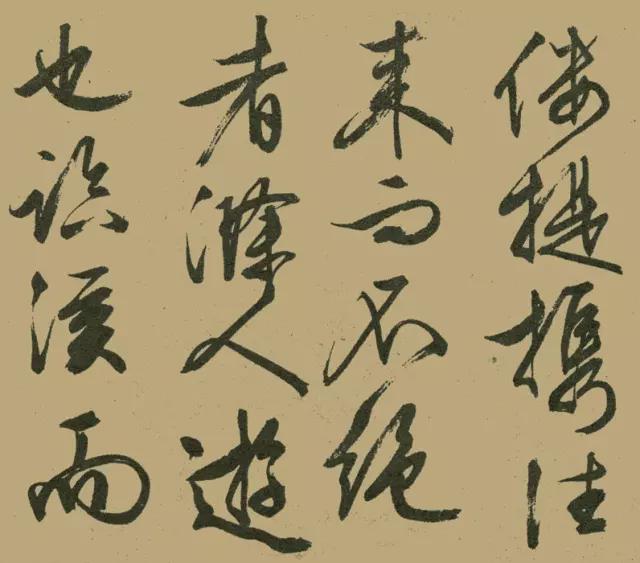 偻提携往
来而不绝
者滁人遊
也临溪而